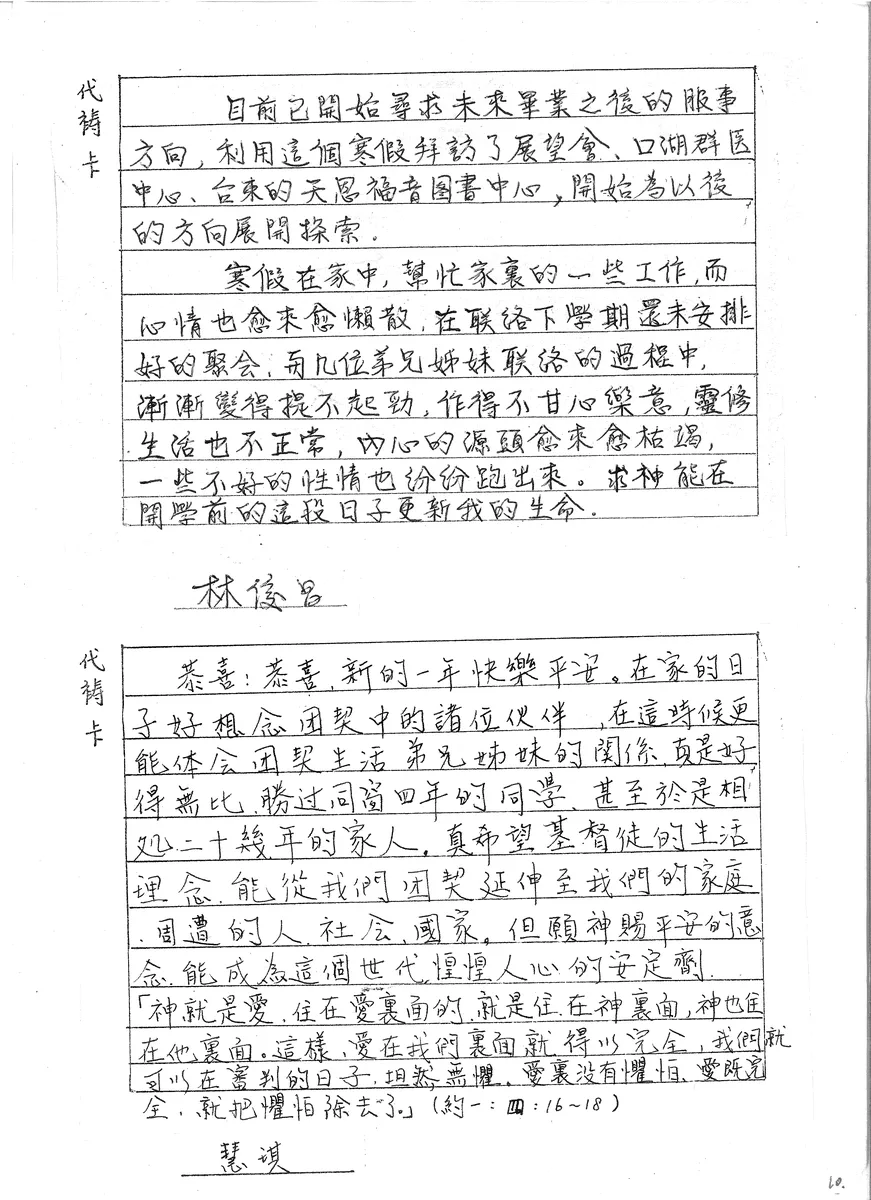 代禱卡
目前已開始尋求未來畢業之後的服事
方向，利用這個寒假拜訪了展望會、口湖群医
中心、台東的天恩福音图書中心，開始為以後
的方向展開探索.
寒假在家中，幫忙家裏的一些工作，而
心情也愈來愈懶散，在联络下學期還未安排
好的聚会，与几位弟兄姊妹联络的過程中，
漸漸變得提不起勁，作得不甘心樂意，靈修
生活也不正常，內心的源頭愈來愈枯竭，
一些不好的性情也纷纷跑出來。求神能在
開學前的這段日子更新我的生命.
林俊昌
代禱卡
恭喜！恭喜，新的一年快樂平安。在家的日
子好想念团契中的諸位伙伴，在這時候更
能体会团契生活弟兄姊妹的関係，真是好
得無比，勝过同窗四年的同學、甚至於是相
处二十幾年的家人。真希望基督徒的生活
理念，能從我們团契延伸至我們的家庭
、周遭的人、社会、國家。但願神賜平安的意
念，能成為這個世代惶惶人心的安定劑.
「神就是愛，住在愛裏面的，就是住在神裏面，神也住
在他裏面。這樣，愛在我們裏面就得以完全，我們就
可以在審判的日子，坦然無懼。愛裏没有懼怕、愛既完
全，就把懼怕除去了。」（約一：四：16~18）
慧琪
10.